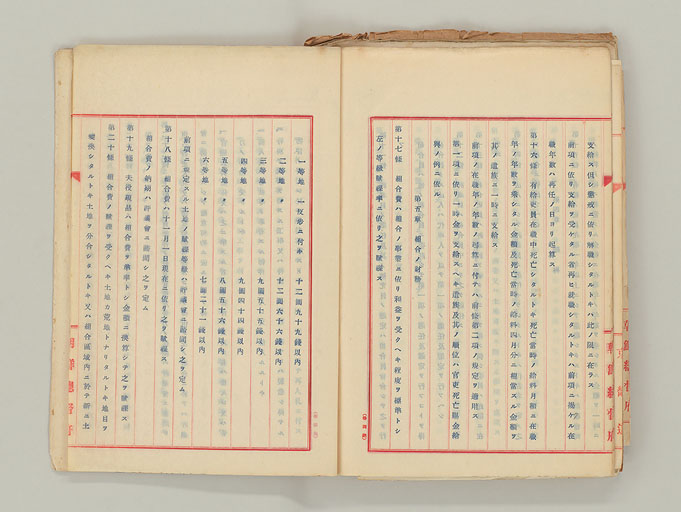 支給ス但シ懲戒ニ依リ解職シタルトキハ此ノ限ニ在ラス
前項ニ依リ支給ヲ受ケタル者再ヒ就職シタルトキハ前項ニ揭ケル在
職年數ハ再任ノ日ヨリ起算ス
第十六條 有給吏員在職中死亡シタルトキ死亡當時ノ給料月額ニ在職
年ノ年數ヲ乘シタル金額及死亡當時ノ給料四月分ニ相當スル金額ヲ
其ノ遺族ニ一時ニ支給ス
前項ノ在職年ノ年數ノ起算ニ付テハ前條第二項ノ規定ヲ適用ス
第一項ニ依リ一時金ヲ支給スヘキ遺族及其ノ順位ハ官吏死亡賜金給
與ノ例ニ依ル
第五章 組合ノ財務
第十七條 組合費ハ組合ノ事業ニ依リ利益ヲ受クヘキ程度ヲ標準トシ
左ノ等級賦課率ニ依リ之ヲ賦課ス
一等地 一反步ニ付キ 十二圓九十九錢以內
二等地 〃 十二圓六十六錢以內
三等地 〃 九圓五十五錢以內
四等地 〃 九圓四十四錢以內
五等地 〃 八圓五十六錢以內
六等地 〃 七圓二十一錢以內
前項ニ規定スル土地ノ賦課等級ハ評議會ニ諮問シ之ヲ定ム
第十八條 組合費ハ十一月一日現在ニ依リ之ヲ賦課ス
組合費ノ納期ハ評議會ニ諮問シ之ヲ定ム
第十九條 夫役現品ハ組合費ヲ準率トシ金額ニ換算シテ之ヲ賦課ス
第二十條 組合費ノ賦課ヲ受クヘキ土地カ荒地トナリタルトキ地目ヲ
變換シタルトキ土地ヲ分合シタルトキ又ハ組合區域內ニ於テ新ニ土
朝鮮總督府